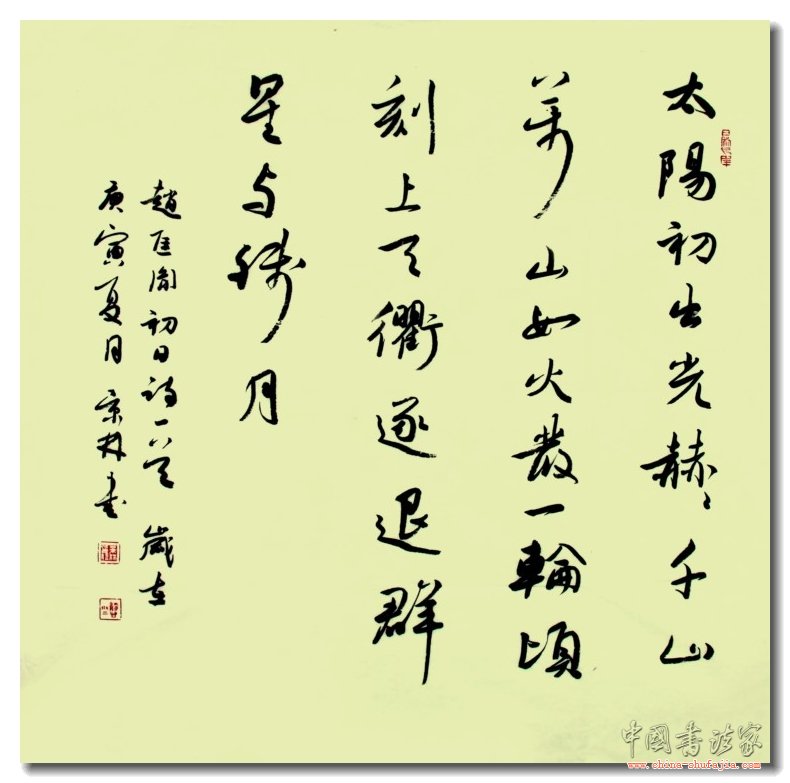 太陽初出光赫〻千山
萬山如火發一輪頃
刻上天衢逐退群
星与殘月
趙匡胤初日詩一首 歲在
庚寅夏月 京林書
中國書法家
www.china-shufajia.com